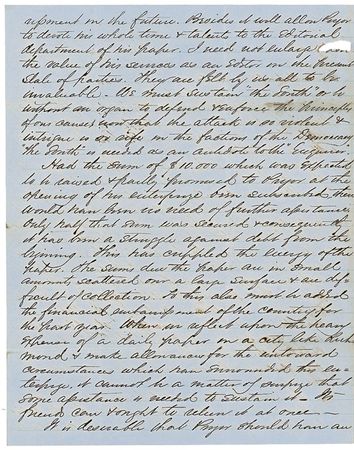 ment in the future. Besides it will allow Pryor
to devote his whole time & talents to the Editorial
department of his paper. I need not enlarge on
the value of his services as an Editor in the present
State of parties. They are felt by us all to be
invaluable. We must sustain "the South" or be
without an organ to defend & enforce the principles
of our cause; now that the attack is so violent &
intrigue is so rife in the factions of the Democracy
"the South" is needed as an antidote to the
Had the sum of $10.000 which was expected
to be raised & partly promised to Pryor at the
opening of his enterprise been subscribed, there
would have been no need of further assistance
Only half that sum was secured & consequently
it has been a struggle against debt from the
beginning. This has crippled the energy of the
paper. The sums due the paper are in small
amounts, scattered over a large surface & are dif-
ficult of collection. To this also must be added
the financial embarrassment of the country for
the past year. When we reflect upon the heavy
expense of a daily paper in a city like Rich
mond & make allowance for the untoward
circumstances which have surrounded the en-
terprise, it cannot be a matter of surprise that
some assistance is needed to sustain it – Its
friends can & ought to relieve it at once –
It is desirable that Pryor should have an